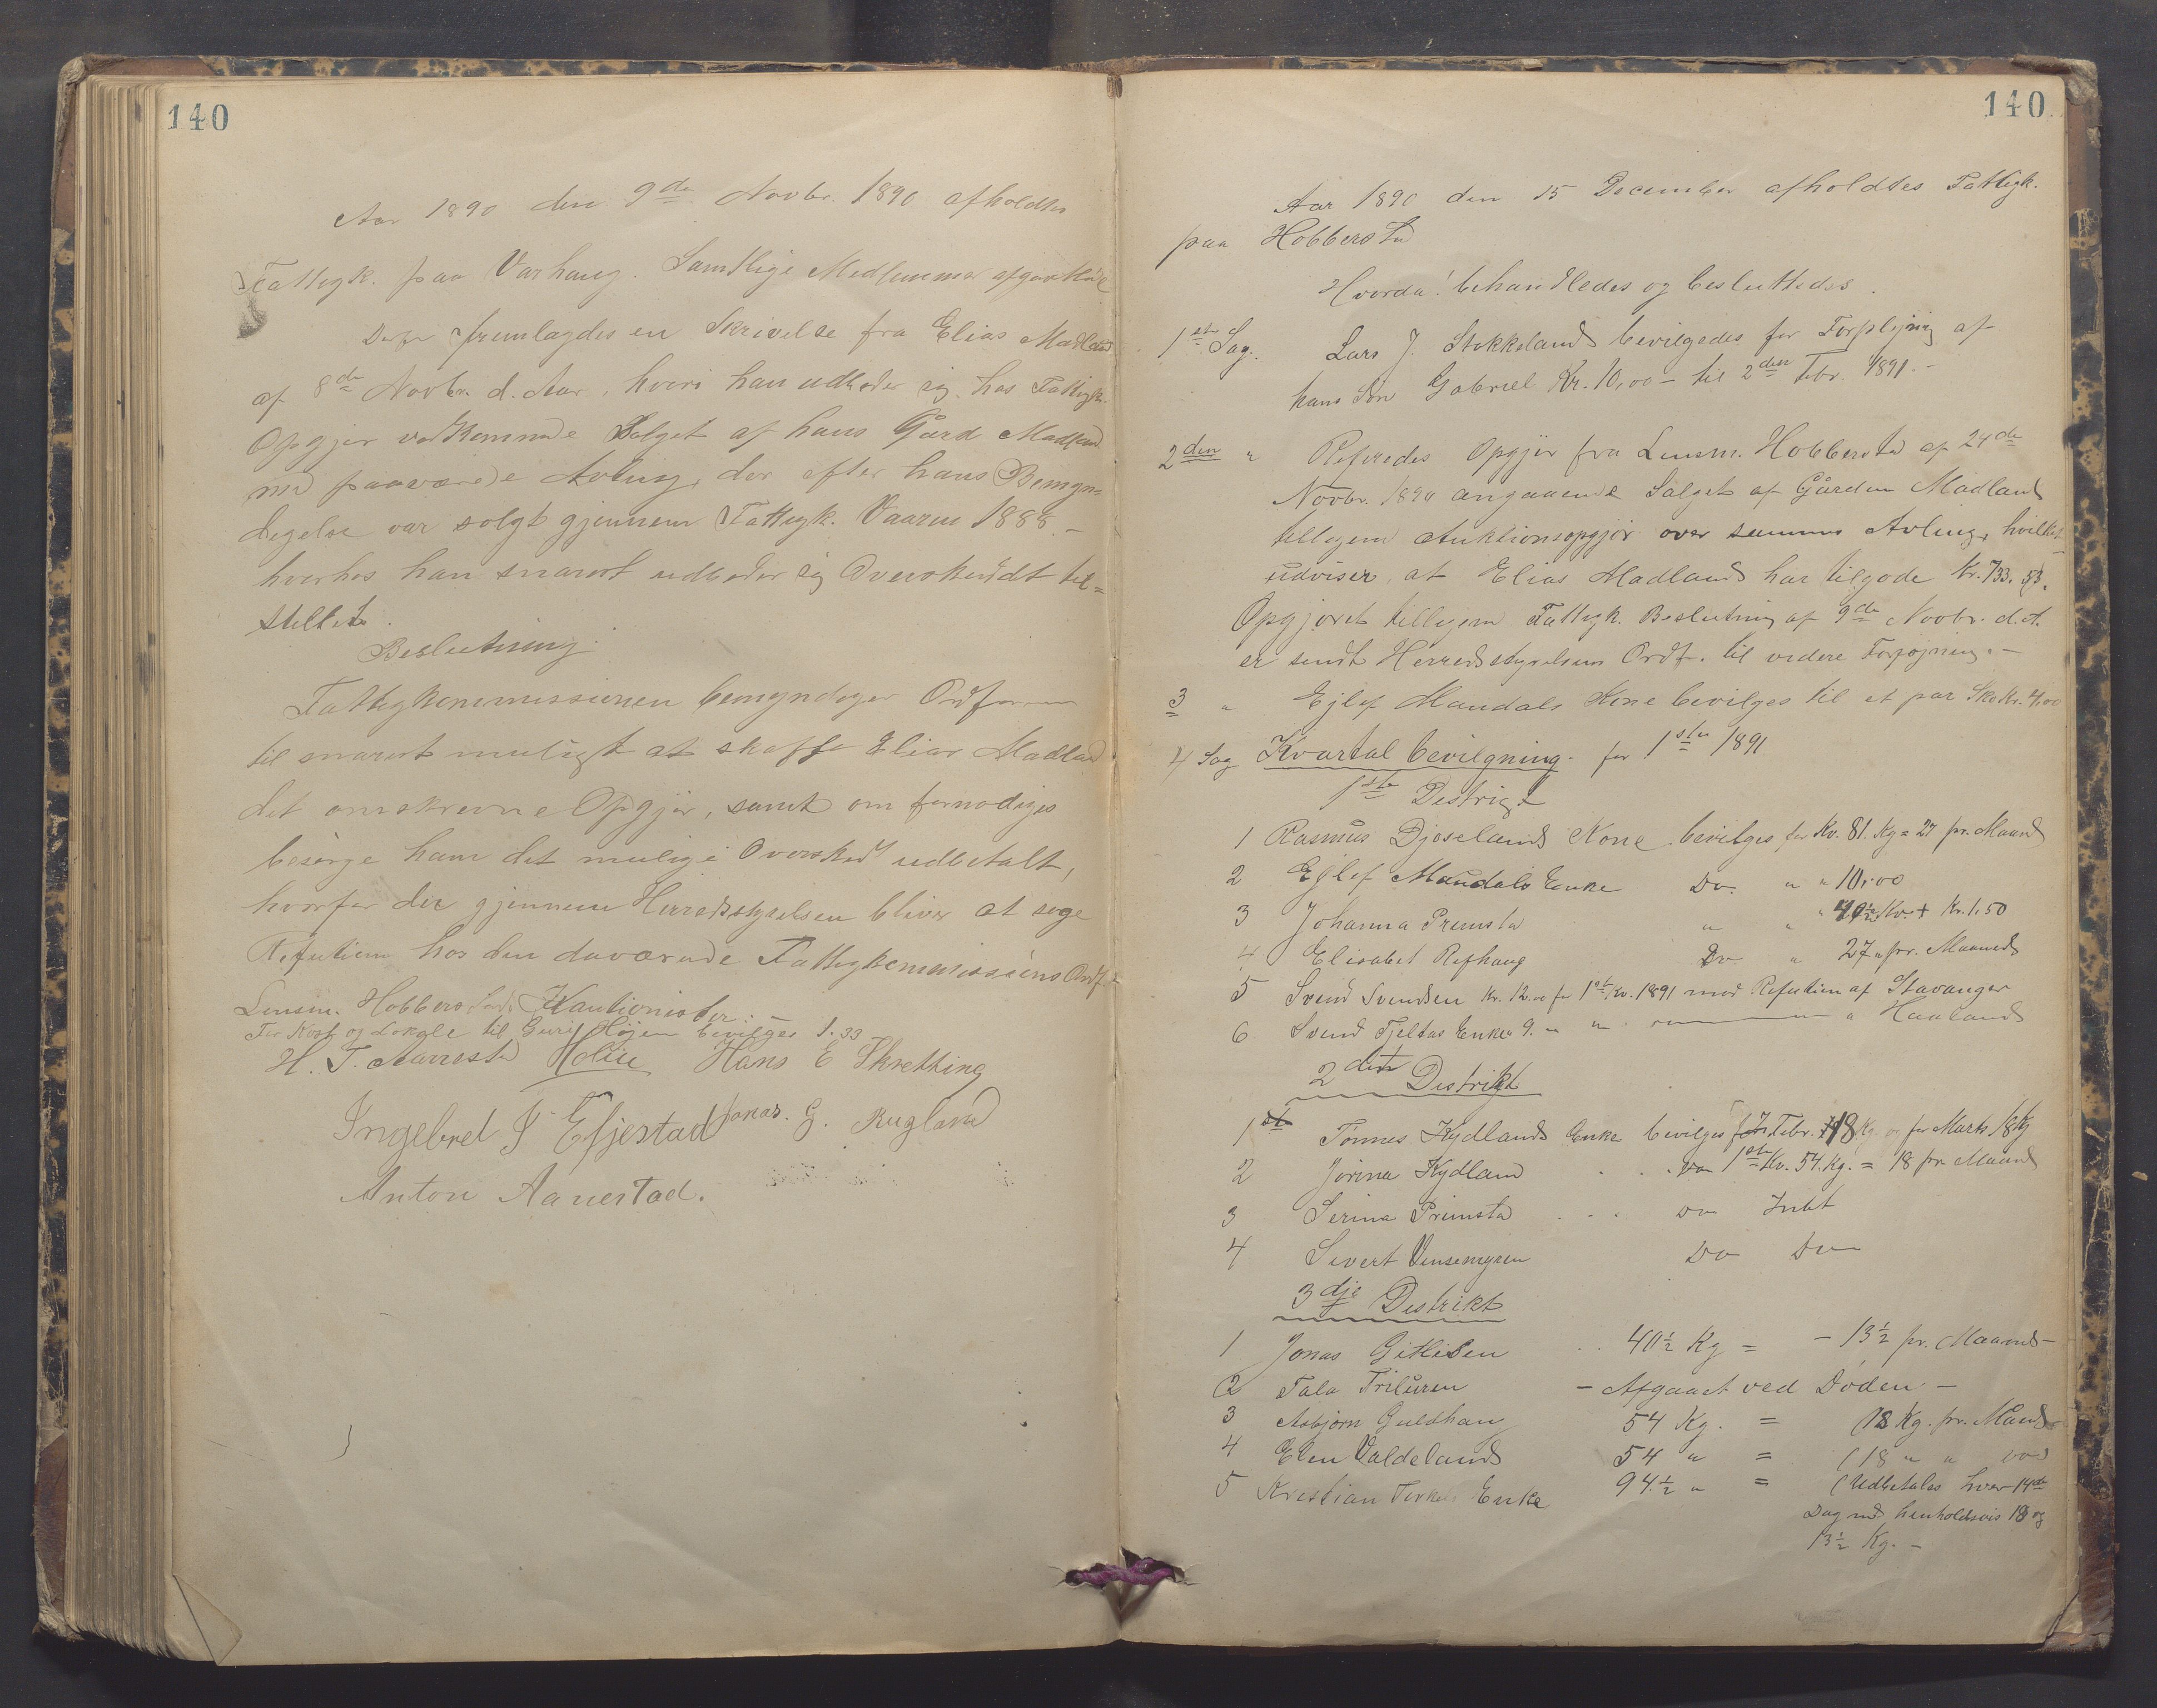 140
Aar 1890 den 9de Novbr. 1890 afholdtes
Fattigk. paa Varhaug. Samtlige Medlemmer afgav Møde
Der fremlagdes en Skrivelse fra Elias Madland
af 8de Novbr. d. Aar, hvori han udbeder sig hos Fattigk.
Opgjør vedkommende Salget af hans Gård Madland
med paaværende Avling, der efter hans Bemyn-
digelse var solgt gjennem Fattigk. Vaaren 1888. -
hvorhos han snarest udbeder sig Overskuddt til=
stillet.
Beslutning:
Fattigkommissionen bemyndiger Ordføreren
til snarest muligt at skaffe Elias Madland
det omskrevne Opgjør, samt om fornødiges
besørge ham det mulige Overskud udbetalt,
hvorfor der gjennem Herredsstyrelsen bliver at søge
Refution hos den daværende Fattigkommissions Ordf.
Lensm. Hobberstads Kautionister.
For Kost og Lokale til Guri Højem bevilges 1.33
H. T. Aarrestad Holie Hans E Skretting
Ingebret T Efjestad Jonas. G. Rugland
Anton Aanestad.
140
Aar 1890 den 15 December afholdtes Fattigk.
paa Hobberstad
Hvorda! behandledes og besluttedes.
1ste Sag. Lars J. Stokkelands bevilgedes for Forplejning af
hans Søn Gabriel Kr. 10,00 - til 2den Febr. 1891. -
2den " Refiredes Opgjør fra Lensm. Hobberstad af 24de
Novbr. 1890 angaaende Salget af Gården Madland
tilligem Auktionsopgjør over samme Avling, hvilket
udviser, at Elias Madland har tilgode kr. 733. 53.
Opgjøret tilligem Fattigk. Beslutning af 9de Novbr. d. A.
er sendt Herredsstyrelsens Ordf. til videre Forføjning. -
3 " Ejlef Maudals Kone bevilges til et par Sko Kr. 4,00
4 Sag Kvartal bevilgning for 1ste 1891
1ste Distrigt
1 Rasmus Djøselands Kone bevilges for Kv. 81. Kg = 27 pr. Maaned
2 Ejlef Maudals Enke Do. " " 10,00
3 Johanna Premstad " " " 40½ Kv. + Kr. 1,50
4 Elisabet Refhaug Do " 27 " pr. Maaned
5 Svend Svendsen Kr. 12.00 for 1ste Kv. 1891 mod Refution af Stavanger
6 Svend Tjeltas Enke 9. " " " Haaland
2det Distrikt
1ste Tønnes Kydlands Enke bevilges for Febr. 18 Kg og for Marts 18 Kg
2 Jorina Kydland Do 1ste Kv. 54. Kg. = 18 pr. Maaned
3 Serina Primstad Do Intet
4 Sivert Vensemyren Do Do
3dje Distrikt
1 Jonas Gitlesen 40½ Kg = - 13½ pr. Maaned -
2 Tala - Afgaaet ved Døden -
3 Asbjørn Guldhau 54 Kg. = (18 Kg. pr. Maaned
4 Elen Valdeland 54 " = (18 " "
5 Kristian Enke 94½ " = (Udbetales hver 14de
Dag med henholdsvis 18 og
13½ Kg. -